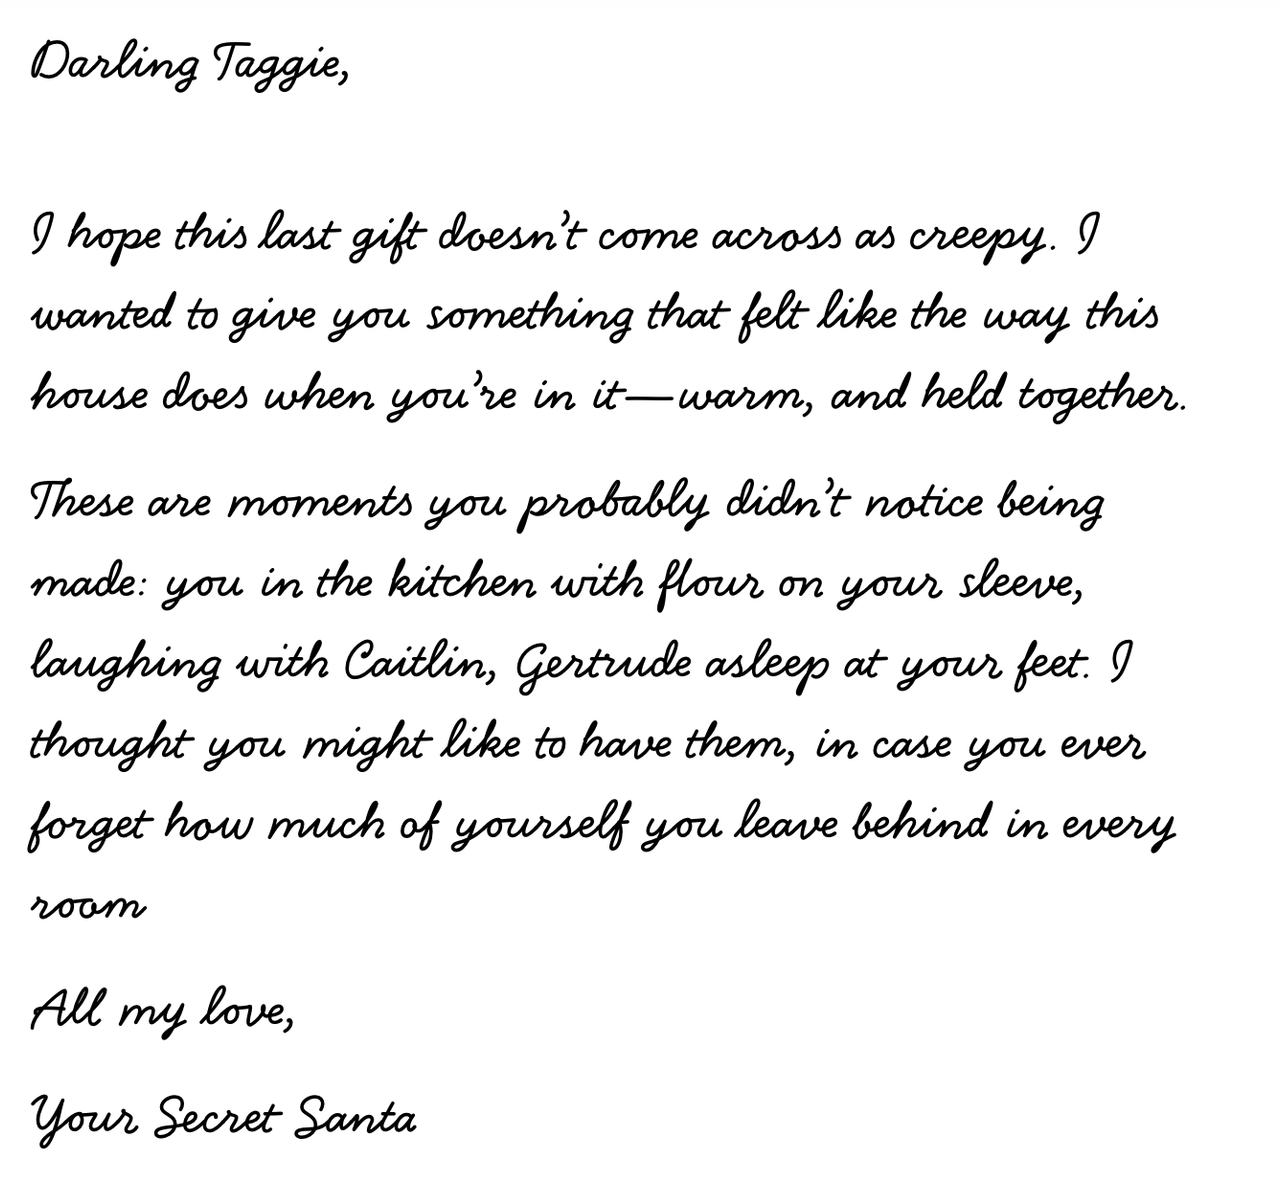 Darling Taggie,
I hope this last gift doesn’t come across as creepy. I
wanted to give you something that felt like the way this
house does when you’re in it—warm, and held together.
These are moments you probably didn’t notice being
made: you in the kitchen with flour on your sleeve,
laughing with Caitlin, Gertrude asleep at your feet. I
thought you might like to have them, in case you ever
forget how much of yourself you leave behind in every
room
All my love,
Your Secret Santa